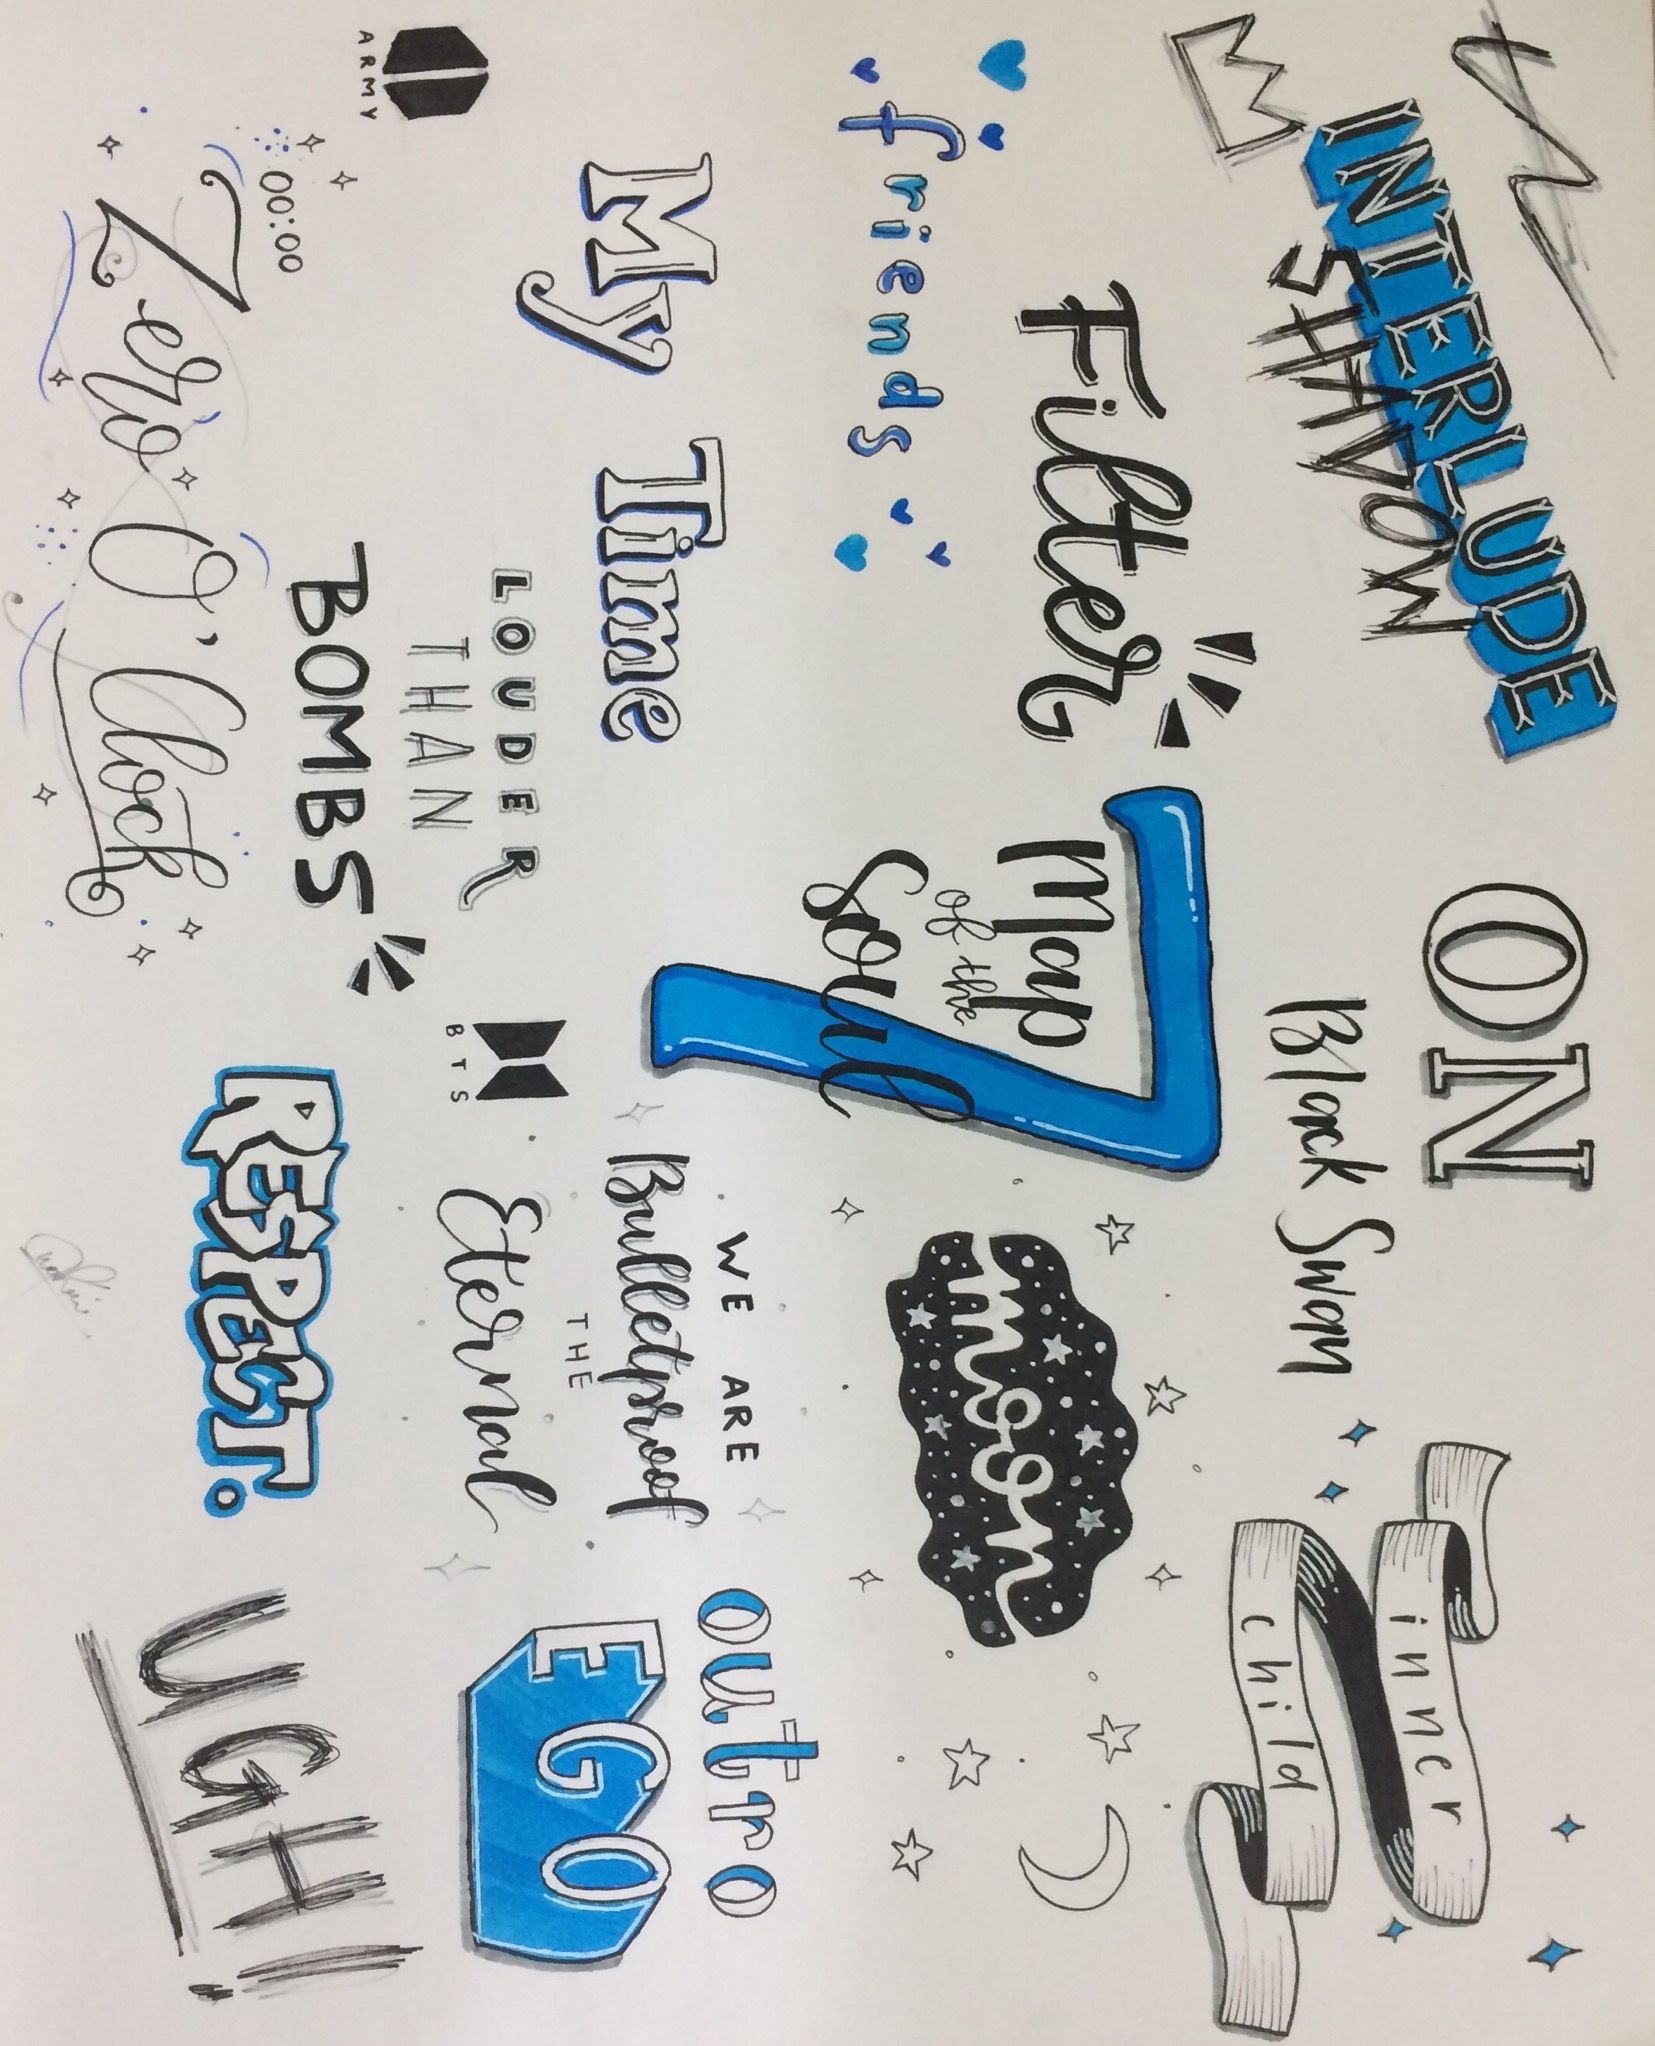 INTERLUDE
SHADOW
ON
Black Swan
inner
child
Filter
friends
Map
of the
Soul
7
moon
My Time
LOUDER
THAN
BOMBS
BTS
WE ARE
Bulletproof
THE
Eternal
outro
EGO
ARMY
00:00
Zero O'Clock
RESPECT.
UGH!